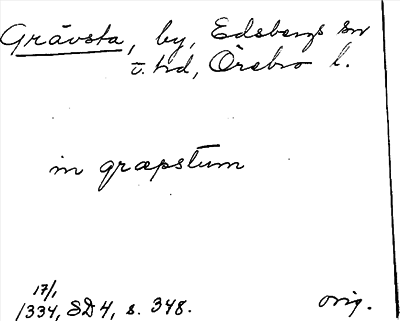 Grävsta, by, Edsbergs sn
o. hd, Örebro l.
in græpstum
17/1
1334, SD 4, s. 348. orig.